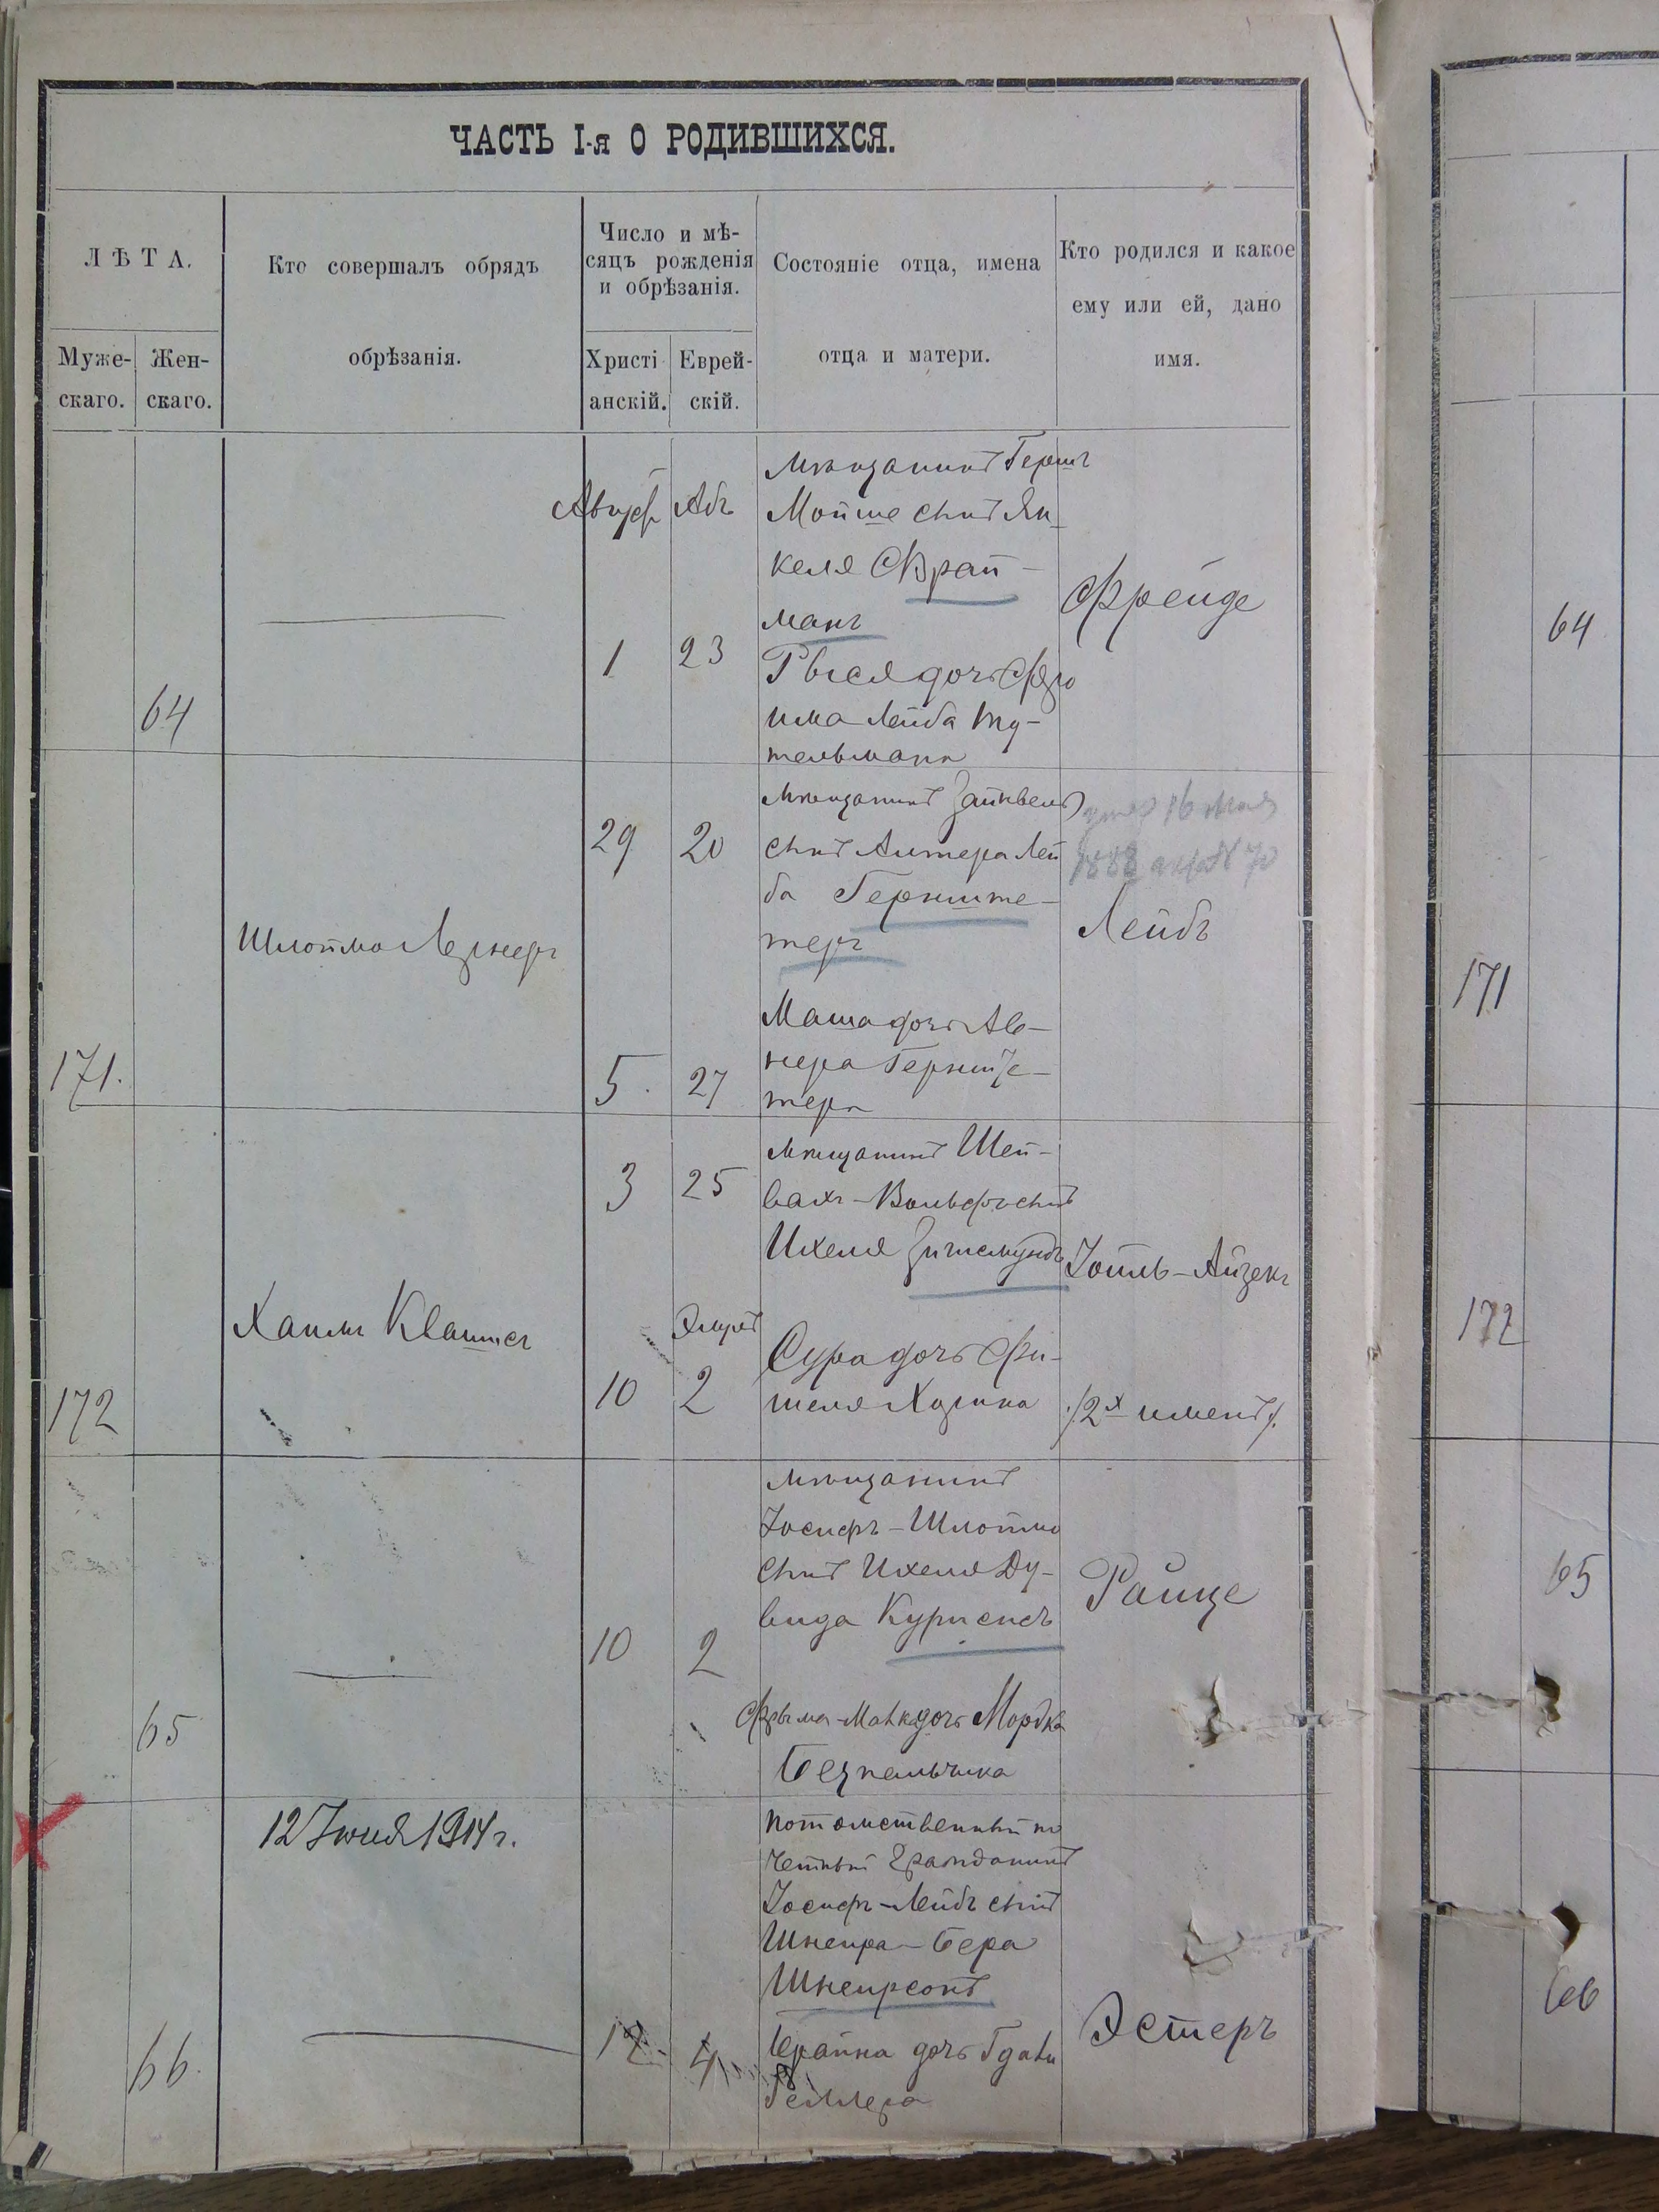 ЧАСТЬ I-я О РОДИВШИХСЯ.
ЛѢТА.
Муже-
скаго.
Жен-
скаго.
Кто совершалъ обрядъ
обрѣзанія.
Число и мѣ-
сяцъ рожденія
и обрѣзанія.
Христі
анскій.
Еврей-
скій.
Состояніе отца, имена
отца и матери.
Кто родился и какое
ему или ей, дано
имя.
64
Август
1
Абъ
23
мѣщанинъ Гершъ
Мойше сынъ Ян-
келя Фрай-
манъ
Рыся дочь Фро
има Лейба
тельмана
Фрейде
171.
Шлойма Лернеръ
29
5.
20
27
мѣщанинъ Зайнвель
сынъ Алтера Лей
ба Герните-
теръ
Маша дочь Ав-
нера
тера
умер 16 мая
1888 70
Лейбъ
172
Хаимъ Квашъ
3
10
25
Элулъ
2
мѣщанинъ Шей-
вахъ-Вольфъ сынъ
Ихеля Зигисмундъ
Сура дочь Фи-
шеля
Іойль-Айзекъ
/2х именъ/.
65
10
2
мѣщанинъ
Іосифъ-Шлойма
сынъ Ихеля Ду-
вида
Фрыма-Матка дочь Мордка
Безпальчика
Райце
66.
12 Іюля 1914 г.
12
4
потомственный по
четный гражданинъ
Іосифъ-Лейбъ сынъ
Шнеура-Бера
Шнеирсонъ
Брайна дочь Гдали
Геллера
Эстеръ
64
171
172
65
66